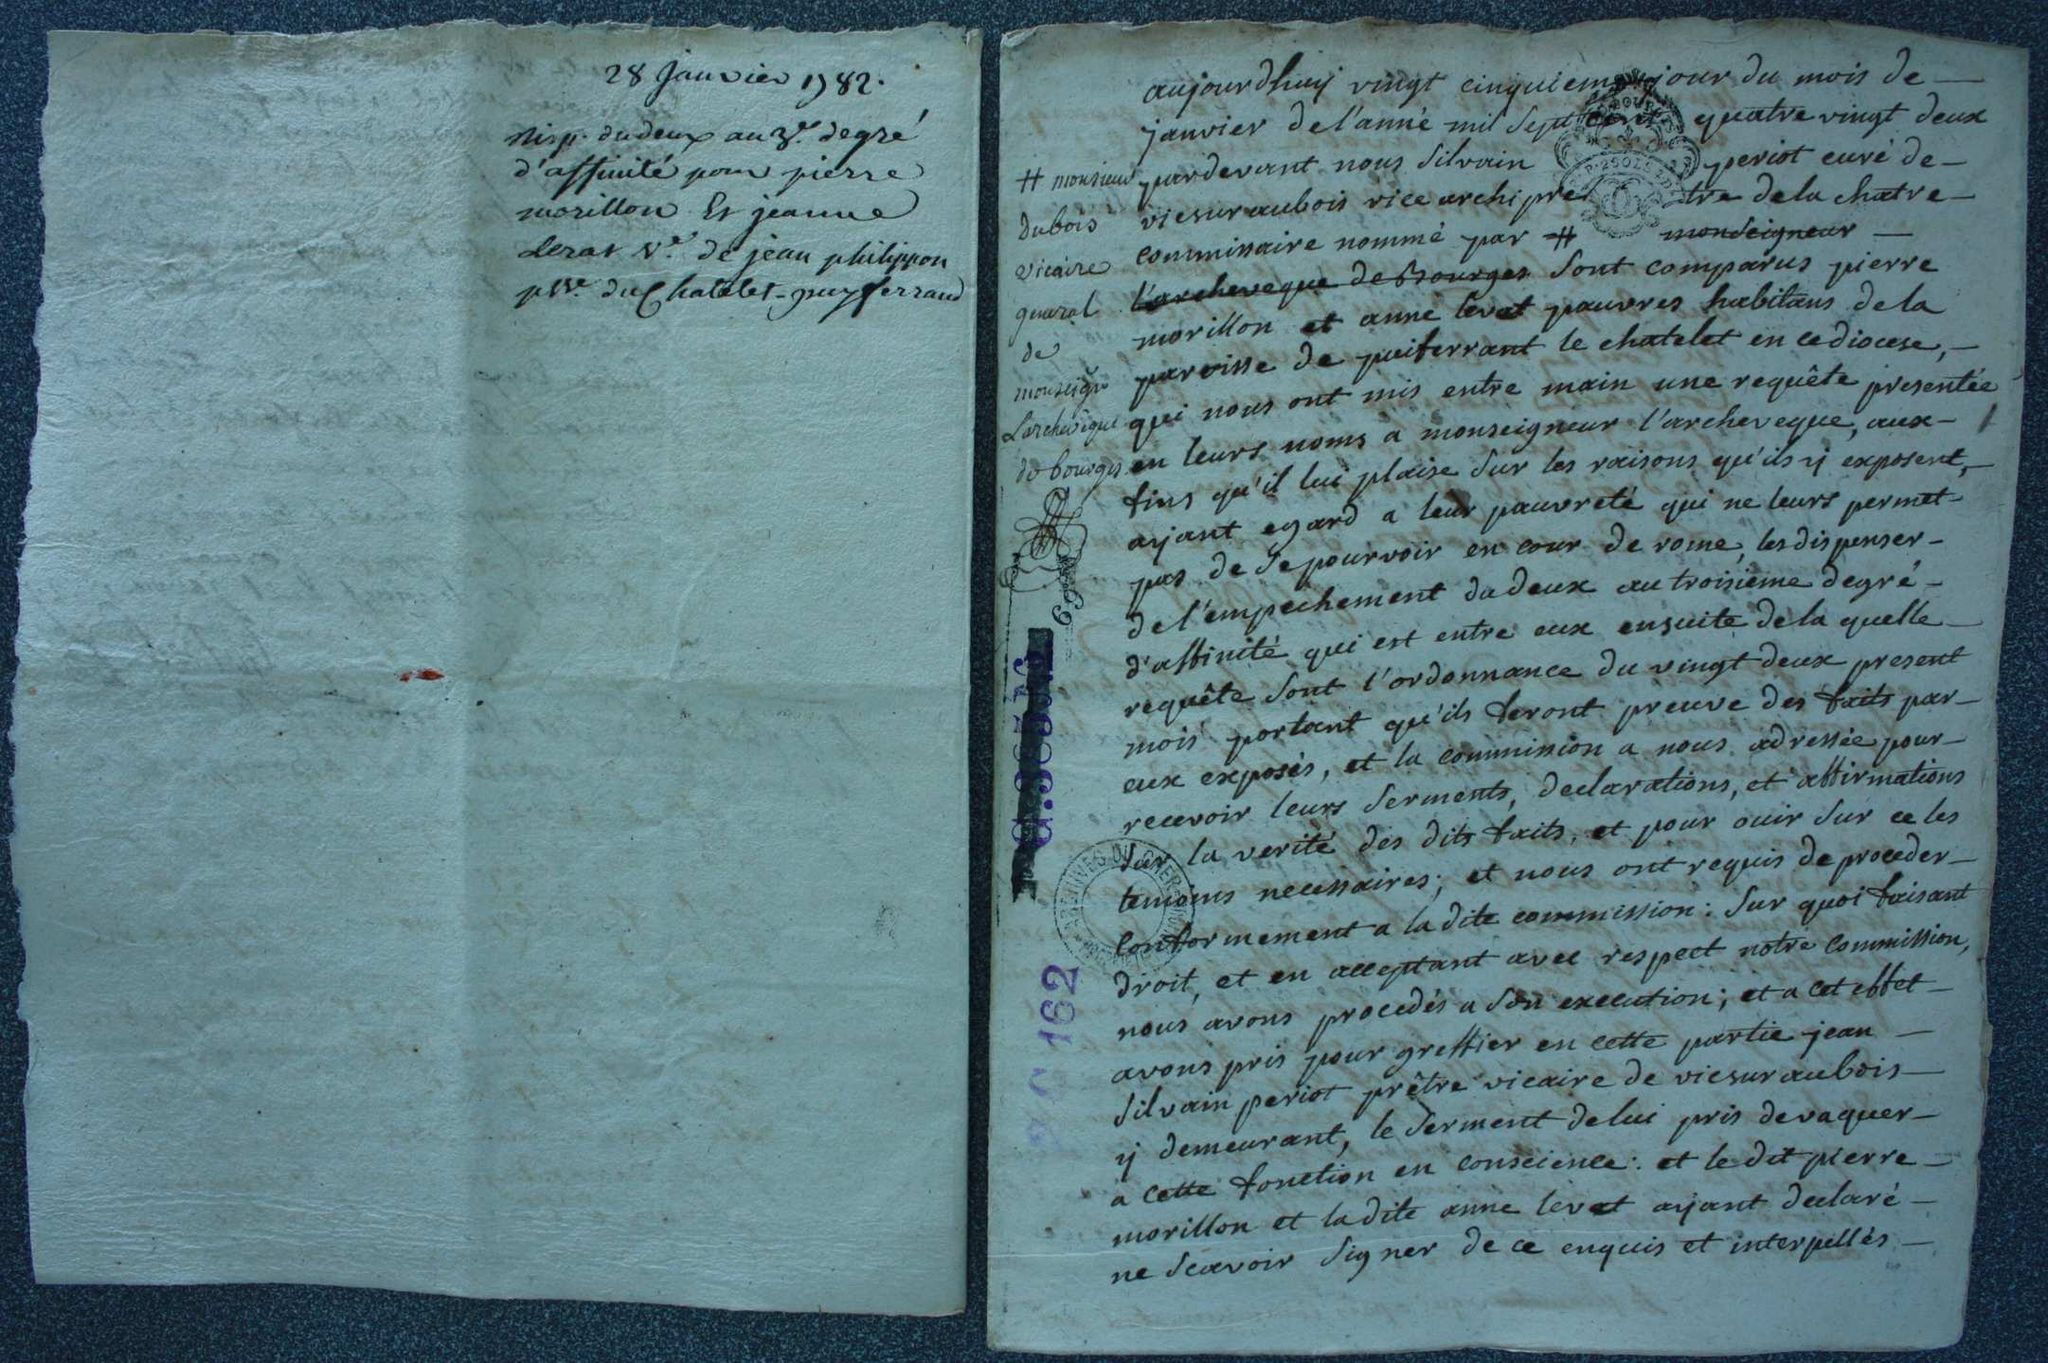 28 Janvier 1782.
Disp. du deux au 3e. degré
d'affinité pour pierre
morillon Et jeanne
Lerat Ve. de jean philippon
psse. du Chatelet-puyferrand
aujourdhuij vingt cinquieme jour du mois de
janvier de l'anné mil Sept cent quatre vingt deux
pardevant nous Silvain periot curé de
vicsuraubois vice archiprêtre de la chatre
commissaire nommé par # monseigneur
l'archeveque de Bourges Sont comparus pierre
morillon et anne levet pauvres habitans de la
paroisse de puiferrant le chatelet en ce diocese,
qui nous ont mis entre main une requête presentée
en leurs noms a monseigneur l'archeveque, aux
fins qu'il lui plaise Sur les raisons qu'ils ij exposent,
aijant egard a leur pauvreté qui ne leurs permet
pas de se pourvoir en cour de rome, les dispenser
de l'empechement du deux au troisieme degré
d'affinité qui est entre eux ensuite de la quelle
requête Sont l'ordonnance du vingt deux present
mois portant qu'ils feront preuve des faits par
eux exposés, et la commission a nous adressée pour
recevoir leurs Serments, declarations, et affirmations
Sur la verité des dits faits, et pour ouir Sur ce les
temoins necessaires; et nous ont requis de proceder
conformement a la dite commission: Sur quoi faisant
droit, et en acceptant avec respect notre commission,
nous avons procedés a Son execution; et a cet effet
avons pris pour greffier en cette partie jean
Silvain periot prêtre vicaire de vicsuraubois
ij demeurant, le Serment de lui pris de vaquer
a cette fonction en conscience: et le dit pierre
morillon et la dite anne levet aijant declaré
ne Scavoir Signer de ce enquis et interpellés
# monsieur
dubois
vicaire
general
de
monseigr
L'archevêque
de bourges
ARCHIVES DU CHER
G 162